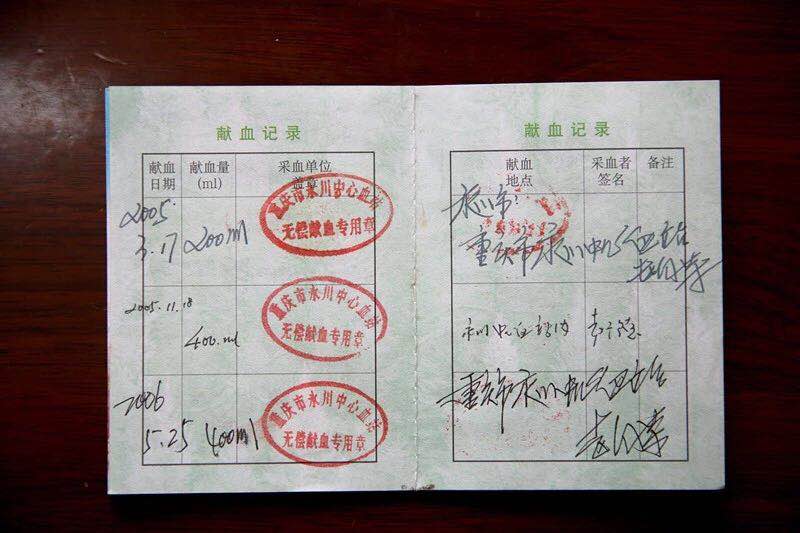 献血记录
献血日期
献血量(ml)
采血单位盖章
2005.
3.17
200ml
重庆市永川中心血站
无偿献血专用章
2005.11.18
400.ml
重庆市永川中心血站
无偿献血专用章
2006
5.25
400ml
重庆市永川中心血站
无偿献血专用章
献血记录
献血地点
采血者签名
备注
永川市
重庆市永川中心血站
重庆市永川中心血站